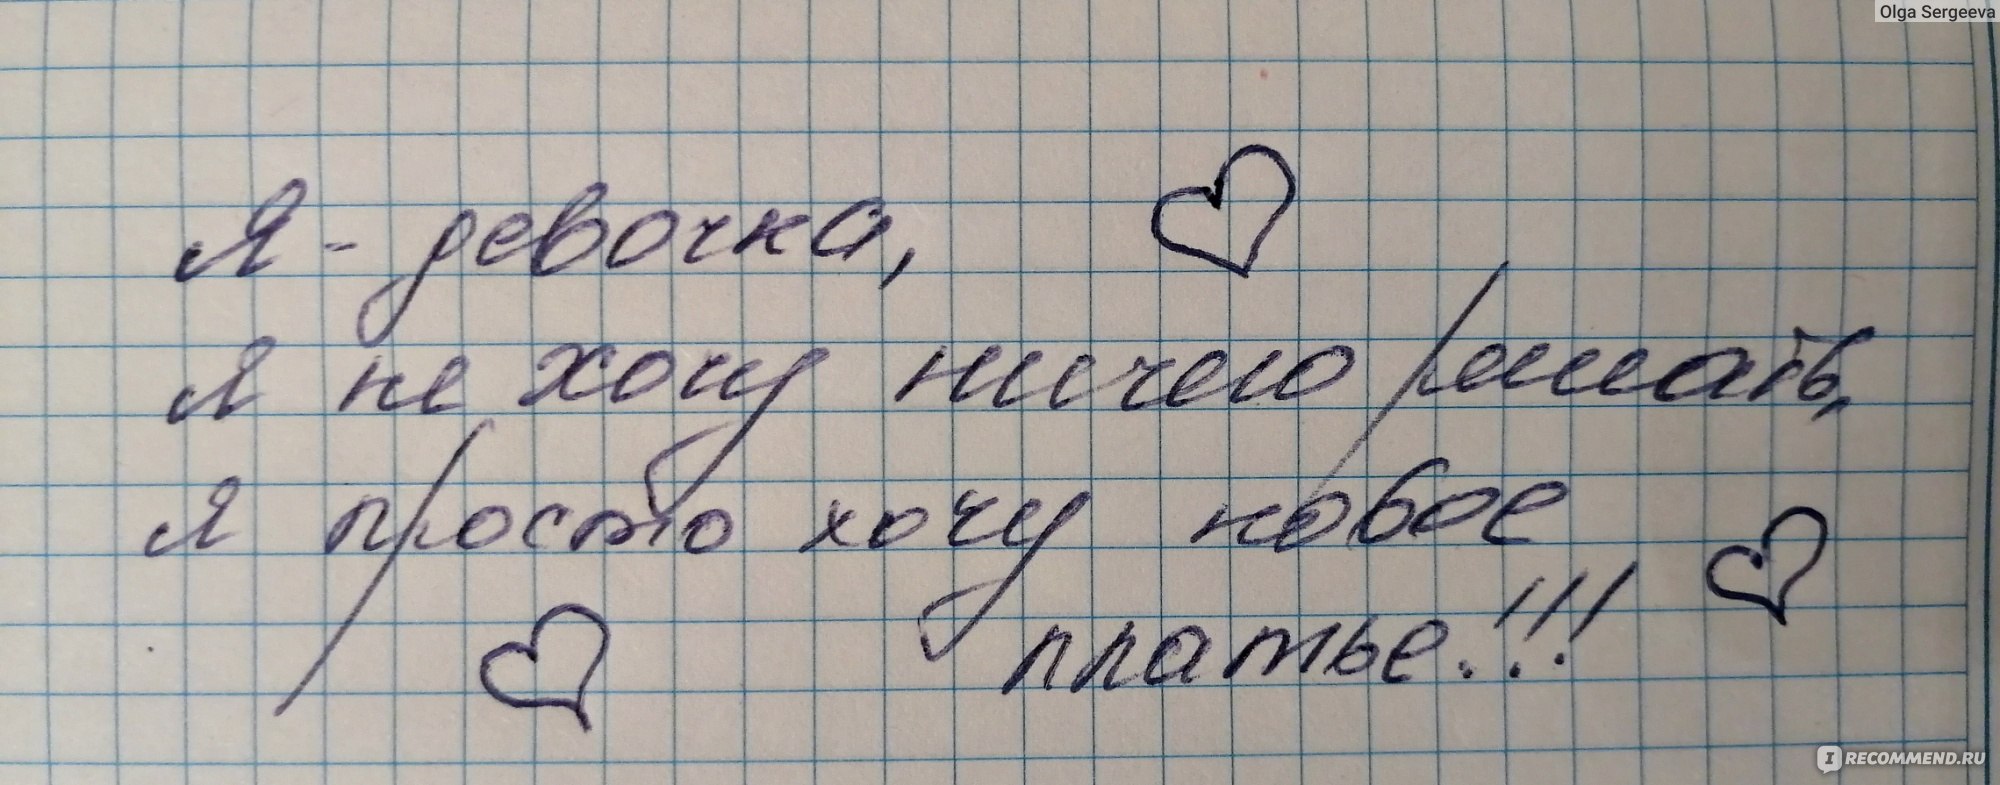 Olga Sergeeva
Я - девочка,
я не хочу ничего решать,
я просто хочу новое
платье!!!
IRECOMMEND.RU